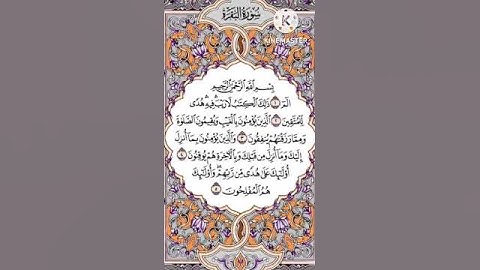 سُورَةُ البَقَرَةِ
KINEMASTER
بِسْمِ اللَّهِ الرَّحْمَٰنِ الرَّحِيمِ
الٓمٓ ۝١ ذَٰلِكَ الْكِتَٰبُ لَا رَيْبَ ۛ فِيهِ ۛ هُدًى
لِّلْمُتَّقِينَ ۝٢ الَّذِينَ يُؤْمِنُونَ بِالْغَيْبِ وَيُقِيمُونَ الصَّلَوٰةَ
وَمِمَّا رَزَقْنَٰهُمْ يُنفِقُونَ ۝٣ وَالَّذِينَ يُؤْمِنُونَ بِمَا أُنزِلَ
إِلَيْكَ وَمَا أُنزِلَ مِن قَبْلِكَ وَبِالْآخِرَةِ هُمْ يُوقِنُونَ ۝٤
أُولَٰئِكَ عَلَىٰ هُدًى مِّن رَّبِّهِمْ ۖ وَأُولَٰئِكَ
هُمُ الْمُفْلِحُونَ ۝٥